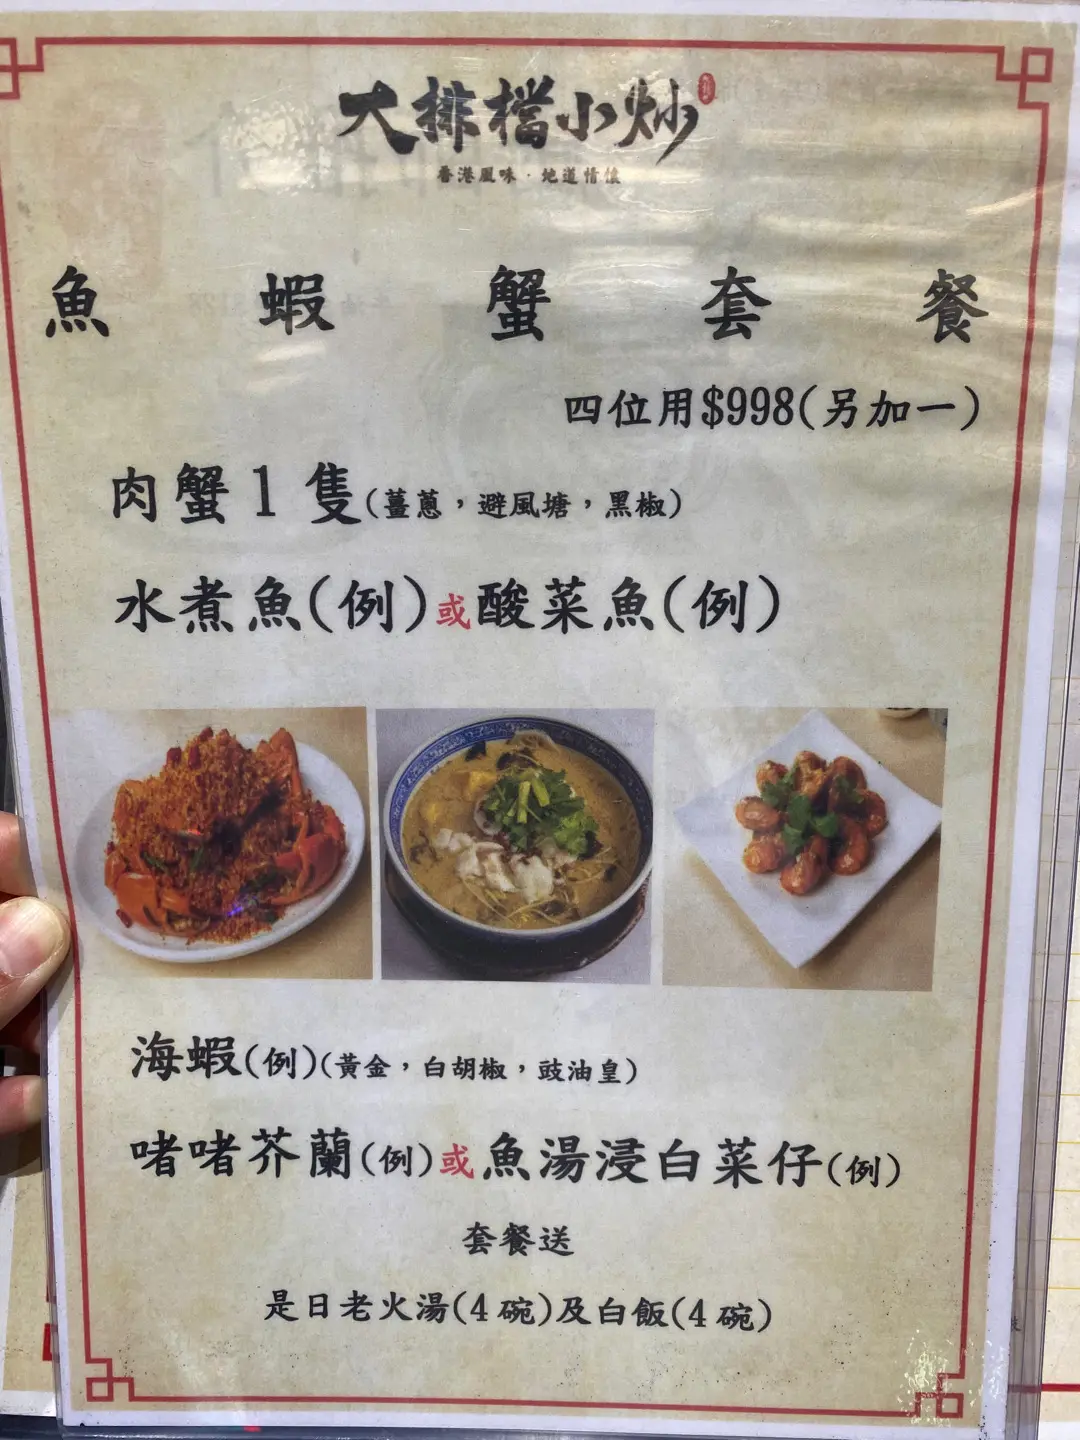 大排檔小炒
香港風味·地道情懷
魚蝦蟹套餐
四位用$998(另加一)
肉蟹1隻(薑蔥，避風塘，黑椒)
水煮魚(例)或酸菜魚(例)
海蝦(例)(黃金，白胡椒，豉油皇)
啫啫芥蘭(例)或魚湯浸白菜仔(例)
套餐送
是日老火湯(4碗)及白飯(4碗)